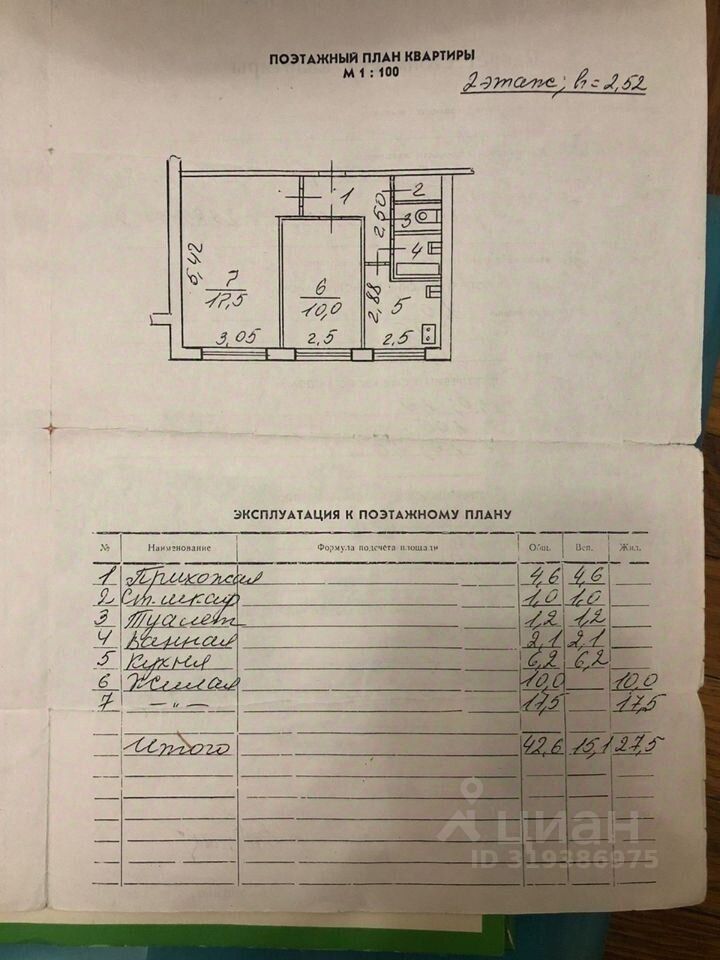 ПОЭТАЖНЫЙ ПЛАН КВАРТИРЫ
М 1 : 100
2 этаж; h = 2,52
1
2
3
4
2,50
5,42
7
17,5
6
10,0
2,88
5
3,05
2,5
2,5
ЭКСПЛУАТАЦИЯ К ПОЭТАЖНОМУ ПЛАНУ
№ Наименование Формула подсчета площади Общ. Всп. Жил.
1 Прихожая 4,6 4,6
2 Ст. шкаф 1,0 1,0
3 Туалет 1,2 1,2
4 Ванная 2,1 2,1
5 Кухня 6,2 6,2
6 Жилая 10,0 10,0
7 —〃— 17,5 17,5
Итого 42,6 15,1 27,5
циан
ID 319386975